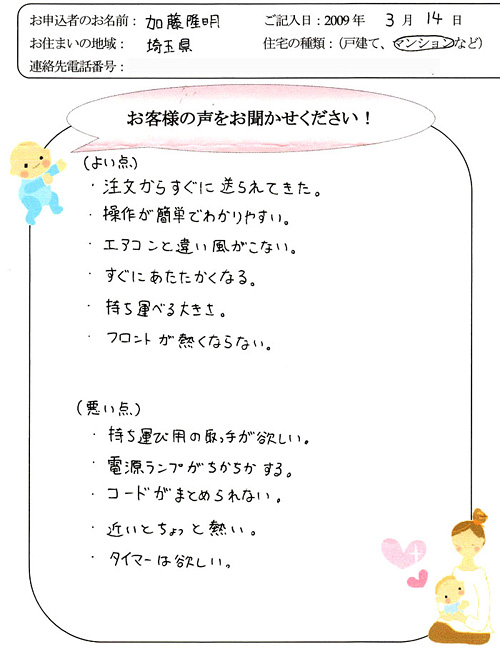 お申込者のお名前： 加藤隆明 ご記入日：2009年 3月 14日
お住まいの地域： 埼玉県 住宅の種類：（戸建て、マンションなど）
連絡先電話番号：
お客様の声をお聞かせください！
（よい点）
・注文からすぐに送られてきた。
・操作が簡単でわかりやすい。
・エアコンと違い風がこない。
・すぐにあたたかくなる。
・持ち運べる大きさ。
・フロントが熱くならない。
（悪い点）
・持ち運び用の取っ手が欲しい。
・電源ランプがちかちかする。
・コードがまとめられない。
・近いとちょっと熱い。
・タイマーは欲しい。